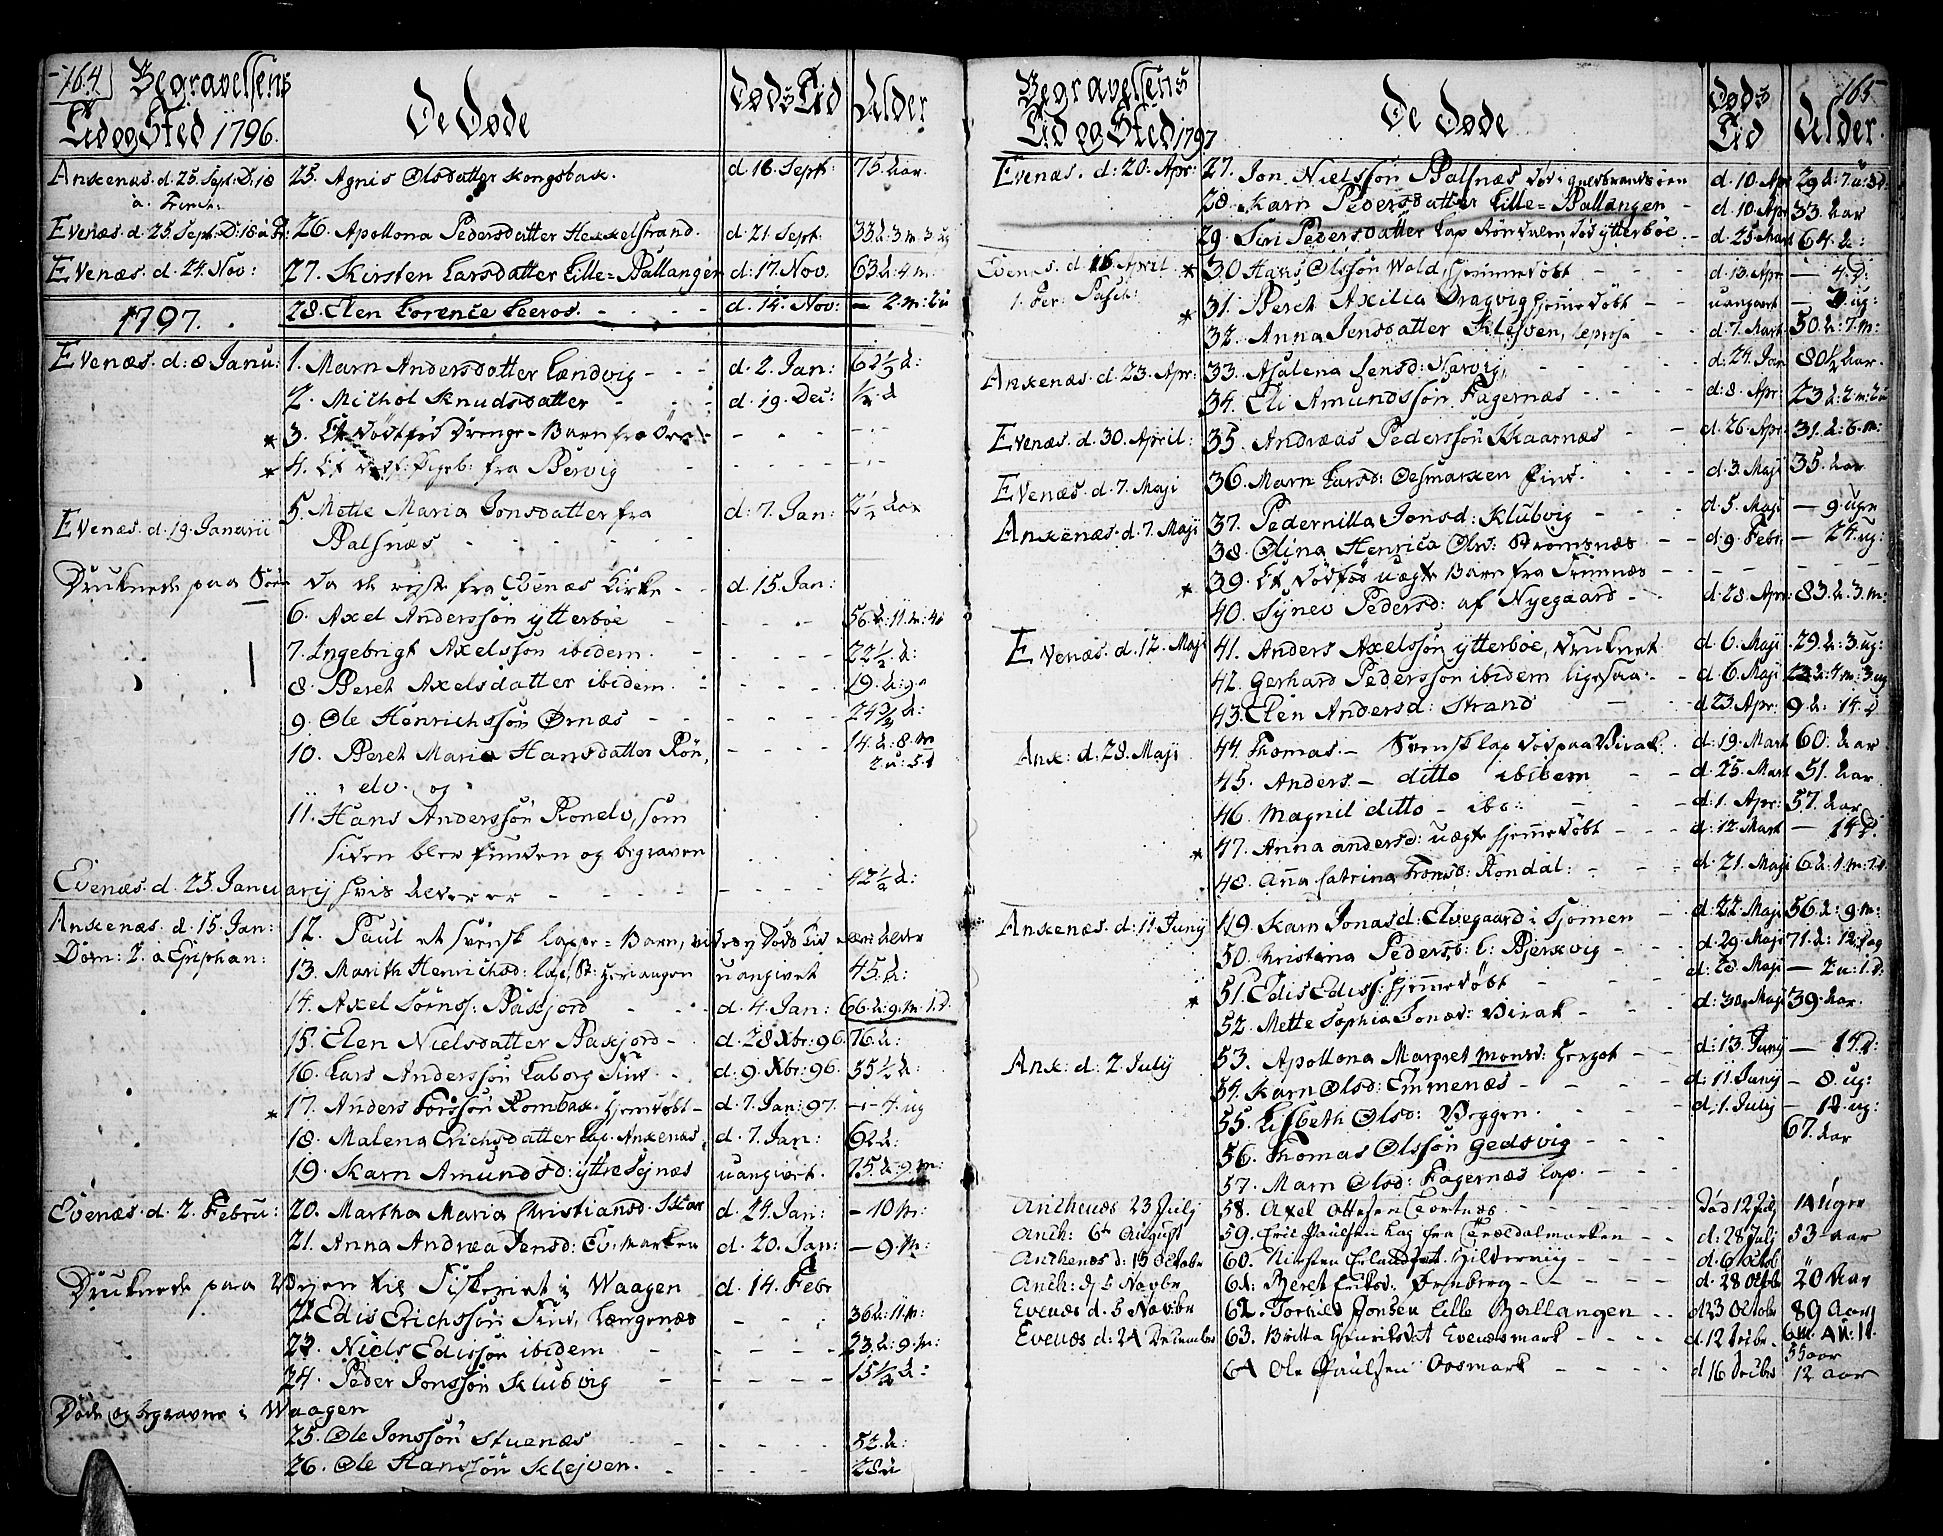 164
Begravelsens
Tid og Sted 1796. De Døde Døds Tid Alder
Anxenæs. d. 25. Sept: D: 18 25. Agnis Olsdatter Kongsbak. d. 16. Sept: 75. Aar.
a. Trinit:
Evenæs. d. 25. Sept. D: 18 a Tr: 26. Apollona Pedersdatter Hexxelstrand. d. 21. Sept. 33 A: 3 m: 3 ug
Evenæs. d. 24. Nov: 27. Kirsten Larsdatter Lille=Ballangen d: 17. Nov. 63 A: 4 m:
28. Elen Lorence Leeros. d. 14. Nov: — 2. m: 2 u
1797.
Evenæs. d. 8 Janu: 1. Marn Andersdatter Lændvig d. 2. Jan: 62½ A:
2. Michol Knudsdatter d. 19. Dec: ½ A
* 3. Et Dödfød Drenge=Barn fra
* 4. Et dødf: Pigeb: fra Bervig
Evenæs. d. 19. Januarii 5. Mette Maria Jonsdatter fra d: 7. Jan: 2½ Aar
Balsnæs
Druknede paa Søen da de reiste fra Evenæs Kirke d. 15. Jan:
6. Axel Anderssön ytterböe 56 A: 11. m: 4 u
7. Ingebrigt Axelssön ibidem. 22½ A:
8. Beret Axelsdatter ibidem. 19. A:
9. Ole Henrichssön Ørnæs 24¾ A:
10. Beret Maria Hansdatter Rön, 14. A: 8. m
elv. og 2. u: 5 d
11. Hans Anderssön Rondelv, som
siden blev funden og begraven
Evenæs. d. 25. Januarij hvis Alder er 42½ A:
Anxenæs. d. 15. Jan: 12. Paul et svensk lappe=Barn,
Dom: 2. a Epiphan: 13. Marith Henrichsd: lap, St: uangivet 45. A:
14. Axel Sørns: Båxjord d. 4. Jan: 66. A: 9. m. 1. d.
15. Elen Nielsdatter Båxjord d. 28 Xbr: 96. 76. A:
16. Lars Anderssön Laborg Find d: 9. Xbr: 96. 55½ A:
* 17. Anders Torssön Rombak. Hjemdöbt d: 7. Jan: 97. — 4. ug
18. Malena Erichsdatter Lap. Anxenæs. d. 7. Jan: 62 A:
19. Karn Amundsd: yttre Sejnæs uangivet. 75. A: 9. m:
Evenæs. d. 2. Febru: 20. Martha Maria Christiansd. d. 24. Jan: — 10 m:
21. Anna Andrea Jensd: Ev: marken d. 20. Jan: — 9. m:
Druknede paa Veyen til Fiskeriet i Waagen d. 14. Febr
22. Edis Erichssön Find, Længenæs 36 A: 11 m:
23. Niels Edissön ibidem 23. A: 9. m:
24. Peder Jonssön Klubvig 15½ A:
Døde og begravne i Waagen
25. Ole Jonssön Stuenæs 52. A:
26. Ole Hanssön Klejven. 28 A
165
Begravelsens
Tid og Sted 1797 De Døde Døds Tid Alder.
Evenæs. d: 20. Apr: 27. Jon Nielssön Balsnæs d. 10. Apr 29 A: 7. u: 3 d:
28. Karn Pedersdatter Lille=Ballangen d. 10. Apr 33. Aar
29. Siri Pedersdatter Lap Röndalen, död ytterböe d. 25. Mart 64. A:
Evenes. d 16 April * 30 Hans Olssön Wold, hjemmedöbt d. 13. Apr — 4. D:
1. Fer: Pasch: * 31. Beret Axilia Dragvig hjemedöbt uangivet — 3. ug:
32. Anna Jensdatter Klejven, leprosa d. 7. Mart 50. A: 7. m:
Anxenæs. d. 23. Apr: 33. Asalena Jensd: Narvig, d: 24. Jan 80½ Aar.
34. Eli Amundssön Fagernæs d. 8. Apr: 23 A: 2 m: 2 u
Evenæs. d. 30. April: 35. Andreas Pederssön Kkaarnæs d. 26. Apr: 31. A: 6. m:
Evenæs. d. 7. Maji 36. Marn Larsd: Oesmarken Find. d. 3. Maji 35. Aar
Anxenæs. d. 7. Maji 37. Pedernilla Jonsd: Klubvig d. 5. Maji — 9. ugr
38. Olina Henrica Olsd: Stromsnæs d. 9. Febr. — 24. ug:
* 39. Et Dödfød uægte Barn fra
40. Synev Pedersd: af Nyegaard d. 28. Apr: 83. A. 3. m:
Evenæs. d. 12. Maji 41. Anders Axelssön ytterböe, druknet d. 6. Maji 29. A: 3. ug:
42. Gerhard Pederssön ibidem ligesaa d. 6. Maji 22 A: 4 m: 3 ug
43. Elen Andersd: Strand d. 23. Apr: 9 A: 14. D
Anx: d: 28. Maji 44. Thomas — Svensk lap död paa Virak. d: 19. Mart 60. Aar
45. Anders — ditto ibidem d: 25. Mart 51. Aar
46. Magnil ditto — ibd: d: 1. Apr: 57. Aar
* 47. Anna andersd: uægte hjemedöbt d: 12. Mart — 14 D.
48. Aña Catrina Tromsd: Rondal: d. 21. Maji 6 A: 4. m: 1. d
Anxenæs. d: 11 Junij 49. Karn Jonasd: Elvegaard i Sjomen d: 22. Maji 56. A: 9. m:
50. Kristina Pedersd: L: Bjerkvig d: 29. Maji 71. A: 12. Dag
* 51. Edis Ediss: Hjemmedöbt d: 28. Maji — 2 u: 1. D.
52. Mette Sophia Jonæd: Virak d: 30. Maji 39. Aar.
Anx: d: 2 July 53. Apollona Margret Monsd: Hergot d: 13. Junij — 14. D:
54. Karn Olsd: Emmenæs d: 11. Junij — 8. ug:
55. Lisbeth Olsd: Veggen. d: 1. July — 12. ug:
56. Thomas Olssön Gedsvig 67. Aar
57. Marn Olsd: Fagernæs lap.
Anchenæs 23 Julj 58. Axel Ottesen Leortnæs Død 12 Julj 14 uger
Anch: 6te August 59. Eric Paulsen Lap fra Teraldalmarken d: 28 Julj 53 aar
Anchenæs d: 15 Octobr 60. Kirsten Erlandsdat Hilderniig d: 6 Octob
Anch: d: 5 Novbr 61. Beret Eriksd. Ørnberg d. 28 Octobr 20 Aar
Evenæs d: 5 Novbr 62. Torkild Jonsen Lille Ballangen d. 23 Octobr 89 Aar
Evenæs d: 24 December 63. Britta Henriksdat Evenæsmark d. 12 Decbr. 6 m: 4 u: 1 d.
55 aar
64 Ole Paulsen Oosmark d 16 Decbr 12 aar